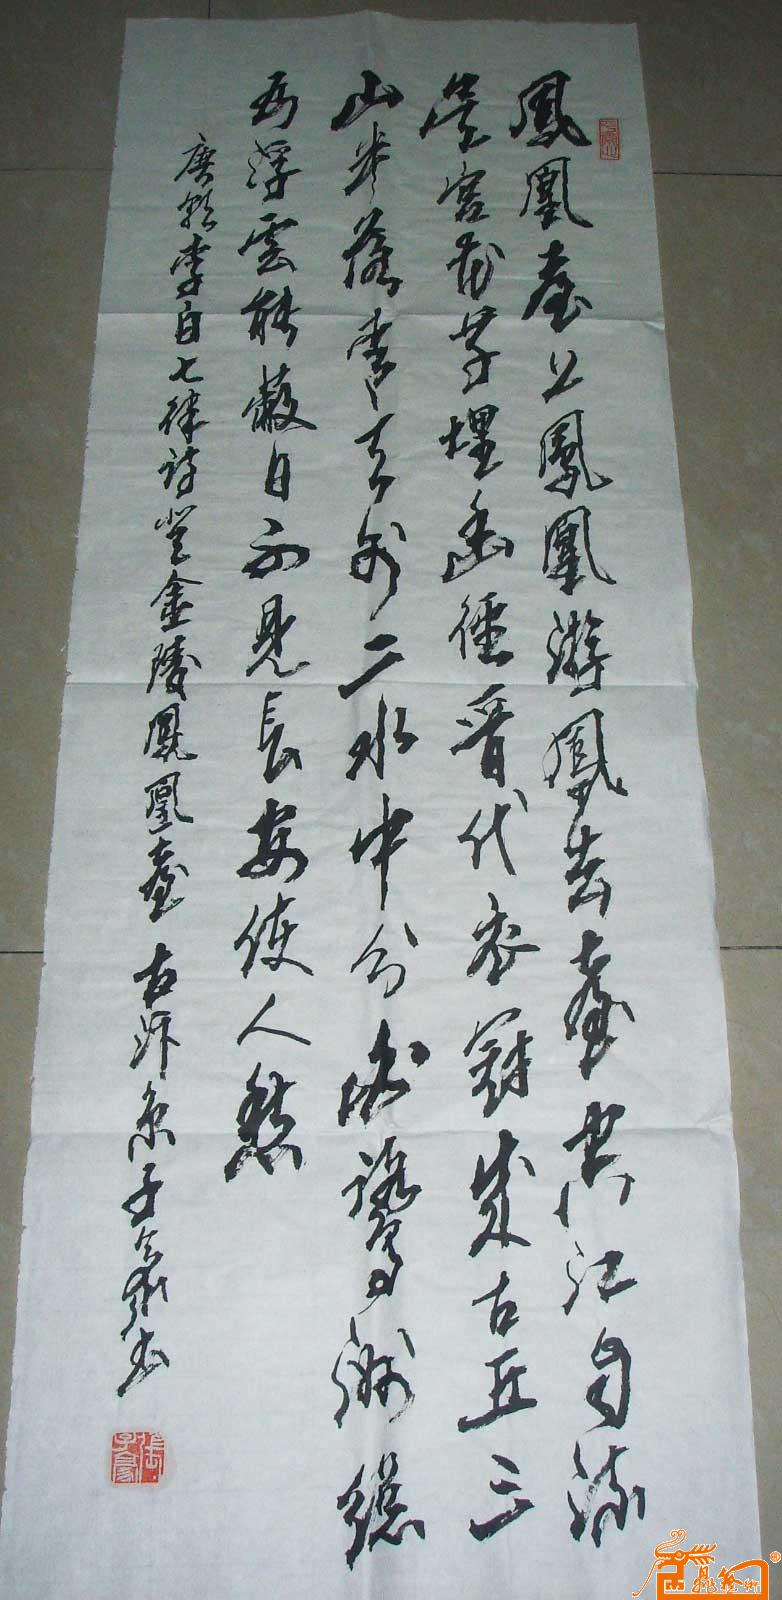 鳳凰臺上鳳凰游鳳去臺空江自流
吳宮花草埋幽徑晋代衣冠成古丘三
山半落青天外二水中分白鷺洲總
為浮雲能蔽日不見長安使人愁
唐朝李白七律詩登金陵鳳凰臺 古沂